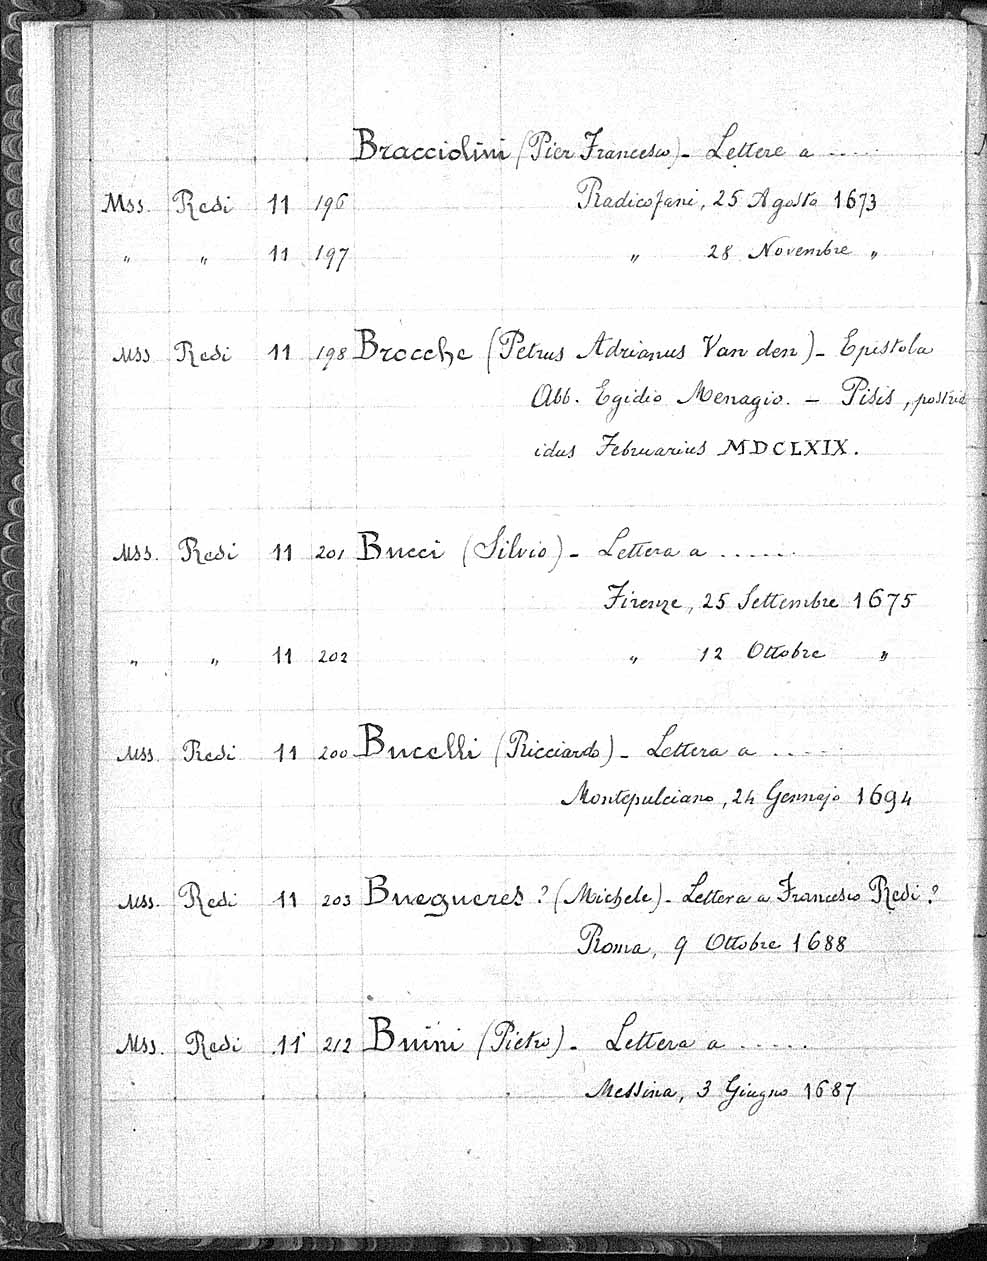 Bracciolini (Pier Francesco) - Lettere a .....
Mss. Redi 11 196 Radicofani, 25 Agosto 1673
" " 11 197 " 28 Novembre "
Mss Redi 11 198 Brocche (Petrus Adrianus Van den) - Epistola
Abb. Egidio Menagio. - Pisis, postrid
idus Februarius MDCLXIX.
Mss. Redi 11 201 Bucci (Silvio) - Lettera a .....
Firenze, 25 Settembre 1675
" " 11 202 " 12 Ottobre "
Mss. Redi 11 200 Bucelli (Ricciardo) - Lettera a .....
Montepulciano, 24 Gennajo 1694
Mss. Redi 11 203 Buegueres ? (Michele) - Lettera a Francesco Redi ?
Roma, 9 Ottobre 1688
Mss. Redi 11 212 Buini (Pietro) - Lettera a .....
Messina, 3 Giugno 1687